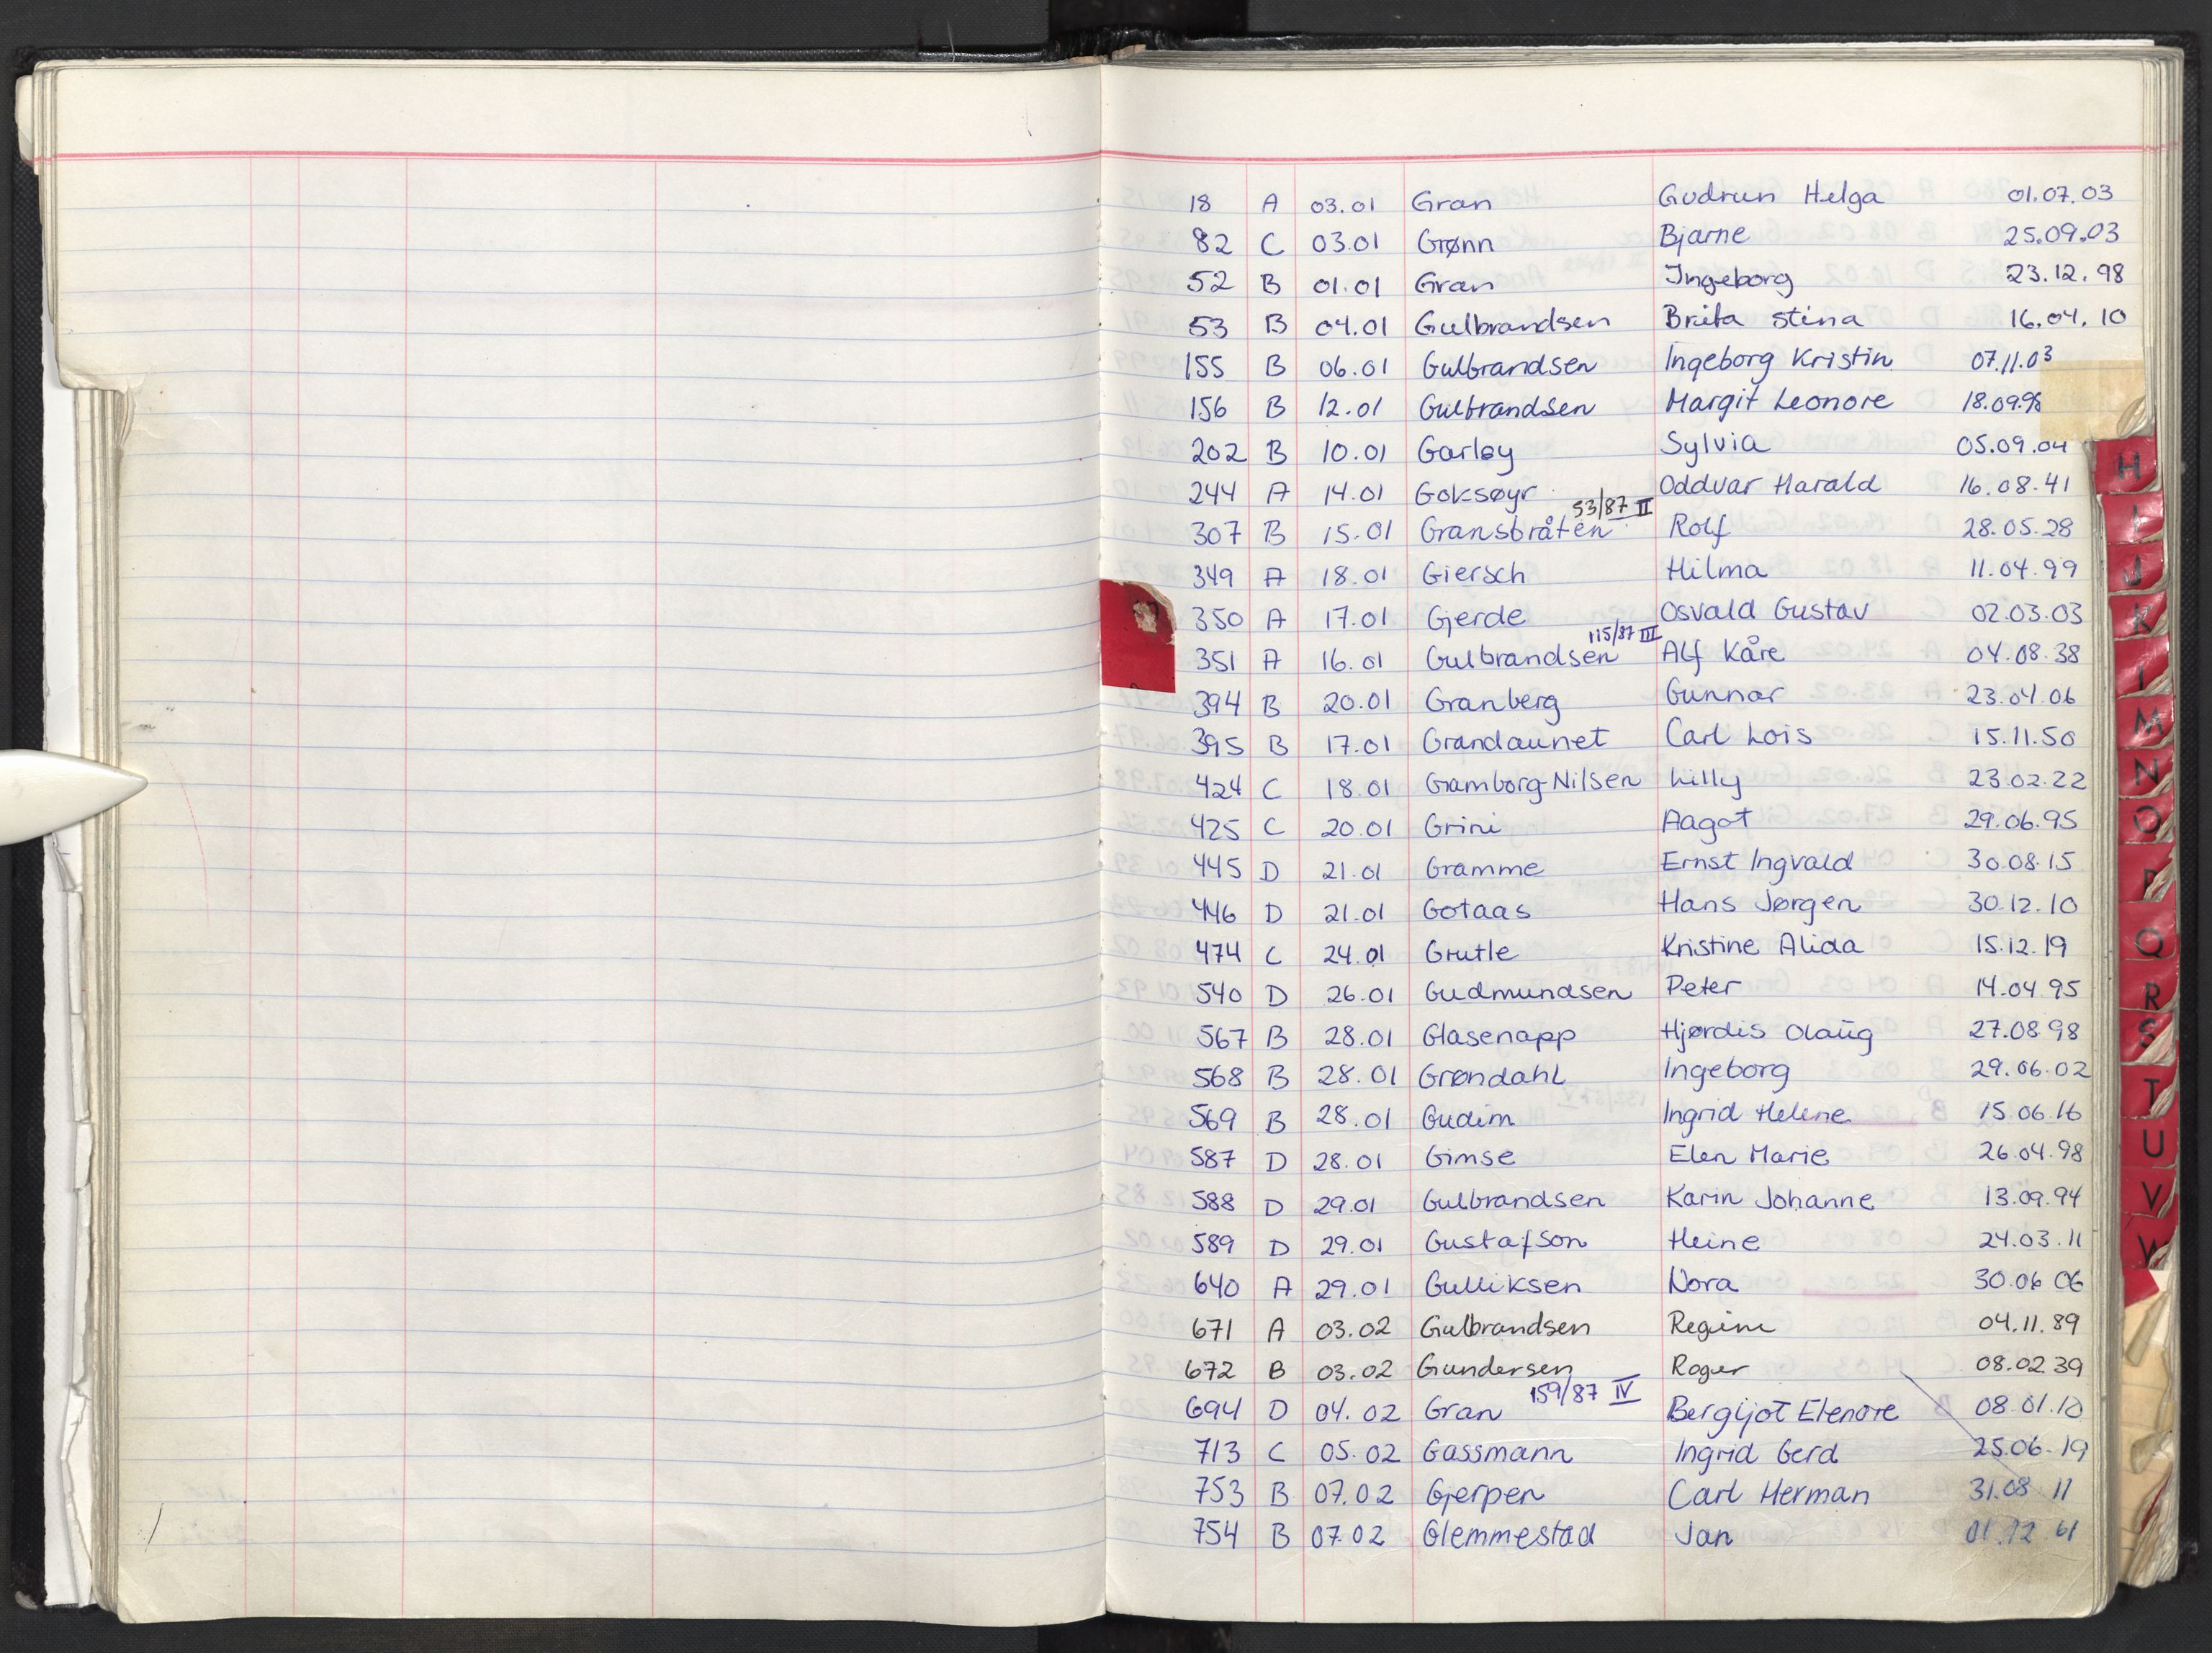 18 A 03.01 Gran Gudrun Helga 01.07.03
82 C 03.01 Grønn Bjarne 25.09.03
52 B 01.01 Gran Ingeborg 23.12.98
53 B 04.01 Gulbrandsen Brita Stina 16.04.10
155 B 06.01 Gulbrandsen Ingeborg Kristin 07.11.03
156 B 12.01 Gulbrandsen Margit Leonore 18.09.98
202 B 10.01 Garley Sylvia 05.09.04
244 A 14.01 Goksøyr Oddvar Harald 16.08.41
53/87 II
307 B 15.01 Gransbråten Rolf 28.05.28
349 A 18.01 Giersch Hilma 11.04.99
350 A 17.01 Gjerde Osvald Gustav 02.03.03
115/87 III
351 A 16.01 Gulbrandsen Alf Kåre 04.08.38
394 B 20.01 Granberg Gunnar 23.04.06
395 B 17.01 Grandaunet Carl Lois 15.11.50
424 C 18.01 Gamborg-Nilsen Lilly 23.02.22
425 C 20.01 Grini Aagot 29.06.95
445 D 21.01 Gramme Ernst Ingvald 30.08.15
446 D 21.01 Gotaas Hans Jørgen 30.12.10
474 C 24.01 Grutle Kristine Alida 15.12.19
540 D 26.01 Gudmundsen Peter 14.04.95
567 B 28.01 Glasenapp Hjørdis Olaug 27.08.98
568 B 28.01 Grøndahl Ingeborg 29.06.02
569 B 28.01 Gudim Ingrid Helene 15.06.16
587 D 28.01 Gimse Elen Marie 26.04.98
588 D 29.01 Gulbrandsen Karin Johanne 13.09.94
589 D 29.01 Gustafson Heine 24.03.11
640 A 29.01 Gulliksen Nora 30.06.06
671 A 03.02 Gulbrandsen Regine 04.11.89
672 B 03.02 Gundersen Roger 08.02.39
159/87 IV
694 D 04.02 Gran Bergljot Elenore 08.01.10
713 C 05.02 Gassmann Ingrid Gerd 25.06.19
753 B 07.02 Gjerpen Carl Herman 31.08.11
754 B 07.02 Glemmestad Jan 01.12.61
H
I
J
K
M
N
O
P
Q
R
S
T
U
V